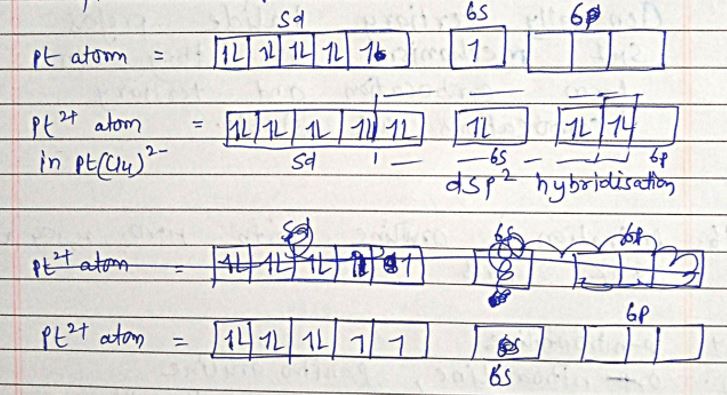 5d 6s 6p
Pt atom = 1L 1L 1L 1L 1 1 
Pt2+ atom = 1L 1L 1L 1L 1L 1L 1L 1L
in Pt(Cl4)2- 5d 6s 6p
dsp2 hybridisation
5d 6s 6p
Pt2+ atom = 1L 1L 1L 1 1
6p
Pt2+ atom = 1L 1L 1L 1 1
6s